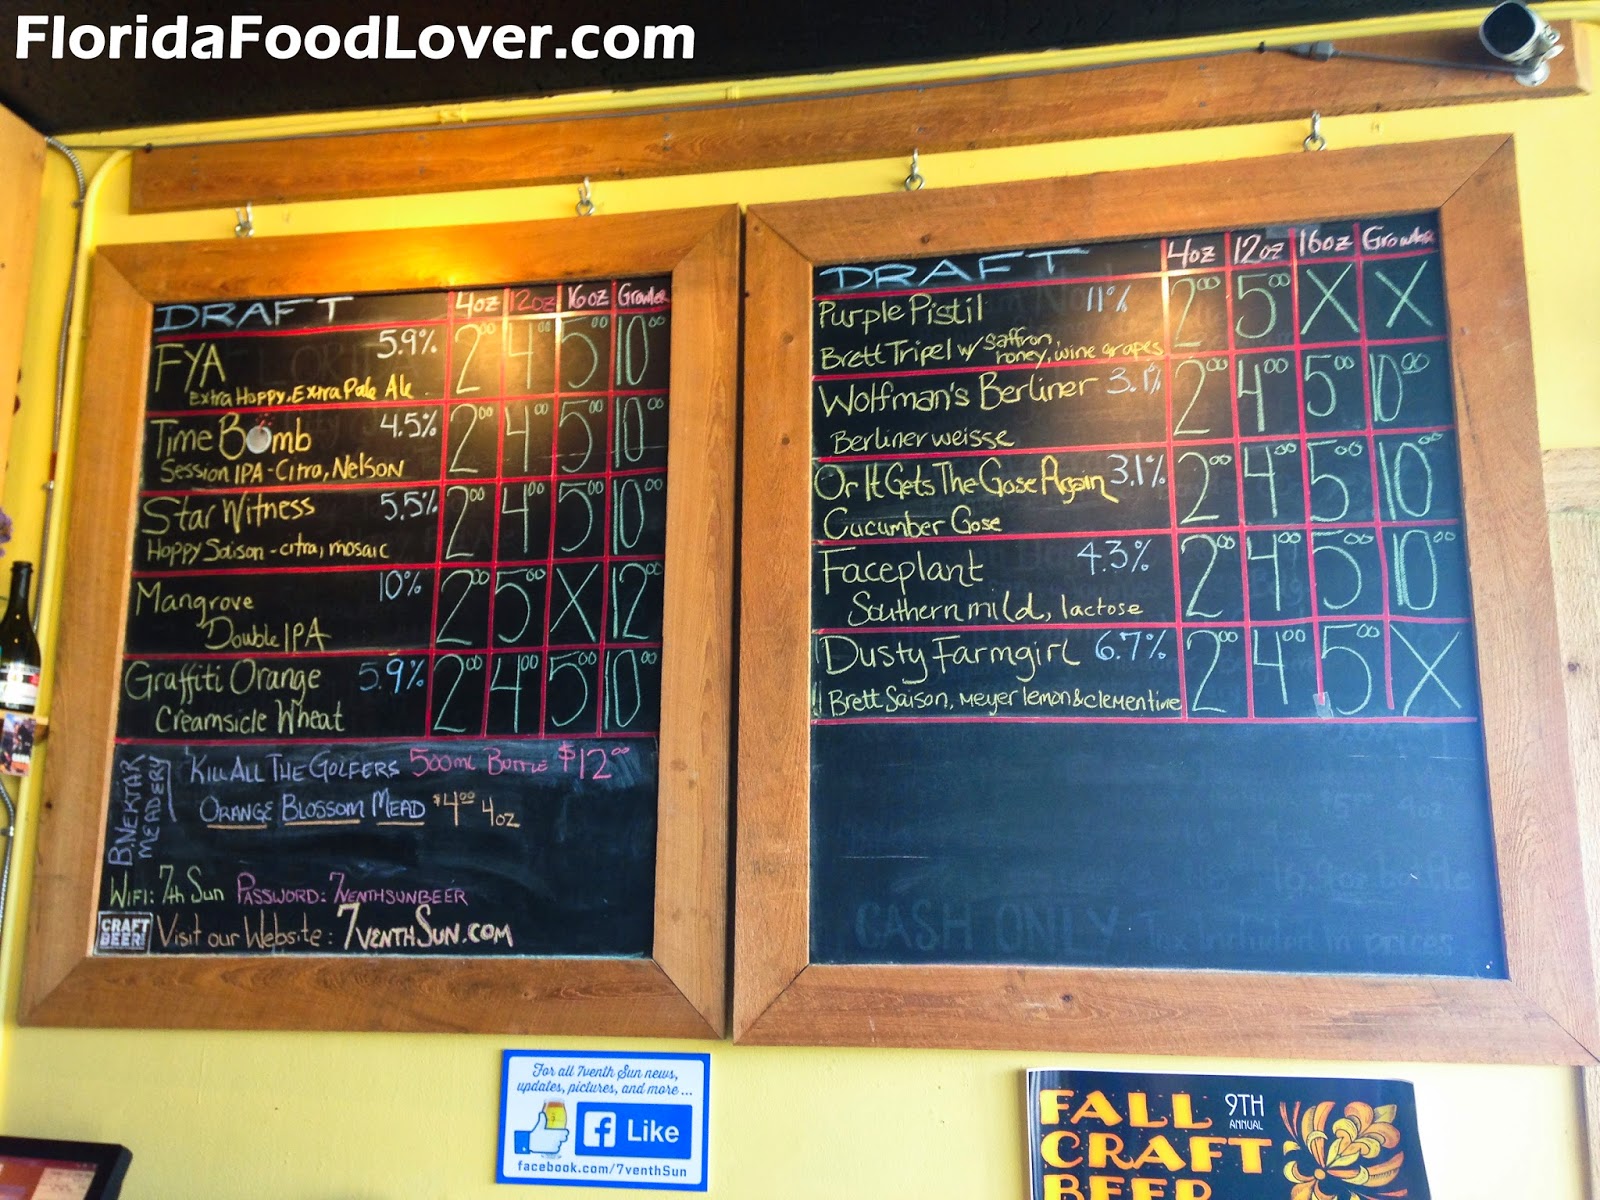 FloridaFoodLover.com
DRAFT 4oz 12oz 16oz Growler
FYA 5.9% 2.00 4.00 5.00 10.00
Extra Hoppy, Extra Pale Ale
Time Bomb 4.5% 2.00 4.00 5.00 10.00
Session IPA - Citra, Nelson
Star Witness 5.5% 2.00 4.00 5.00 10.00
Hoppy Saison - citra, mosaic
Mangrove 10% 2.00 5.00 X 12.00
Double IPA
Graffiti Orange 5.9% 2.00 4.00 5.00 10.00
Creamsicle Wheat
B. Nektar
Meadery
Kill All The Golfers 500ml Bottle $12.00
Orange Blossom Mead $4.00 4oz
Wifi: 7th Sun Password: 7venthsunbeer
CRAFT
BEER
Visit our Website: 7venthSun.com
DRAFT 4oz 12oz 16oz Growler
Purple Pistil 11% 2.00 5.00 X X
Brett Tripel w/ saffron,
honey, wine grapes
Wolfman's Berliner 3.1% 2.00 4.00 5.00 10.00
Berliner weisse
Or It Gets The Gose Again 3.1% 2.00 4.00 5.00 10.00
Cucumber Gose
Faceplant 4.3% 2.00 4.00 5.00 10.00
Southern mild, lactose
Dusty Farmgirl 6.7% 2.00 4.00 5.00 X
Brett Saison, meyer lemon & clementine
CASH ONLY Tax included in prices
For all 7venth Sun news,
updates, pictures, and more ...
f Like
facebook.com/7venthSun
FALL 9TH
ANNUAL
CRAFT
BEER